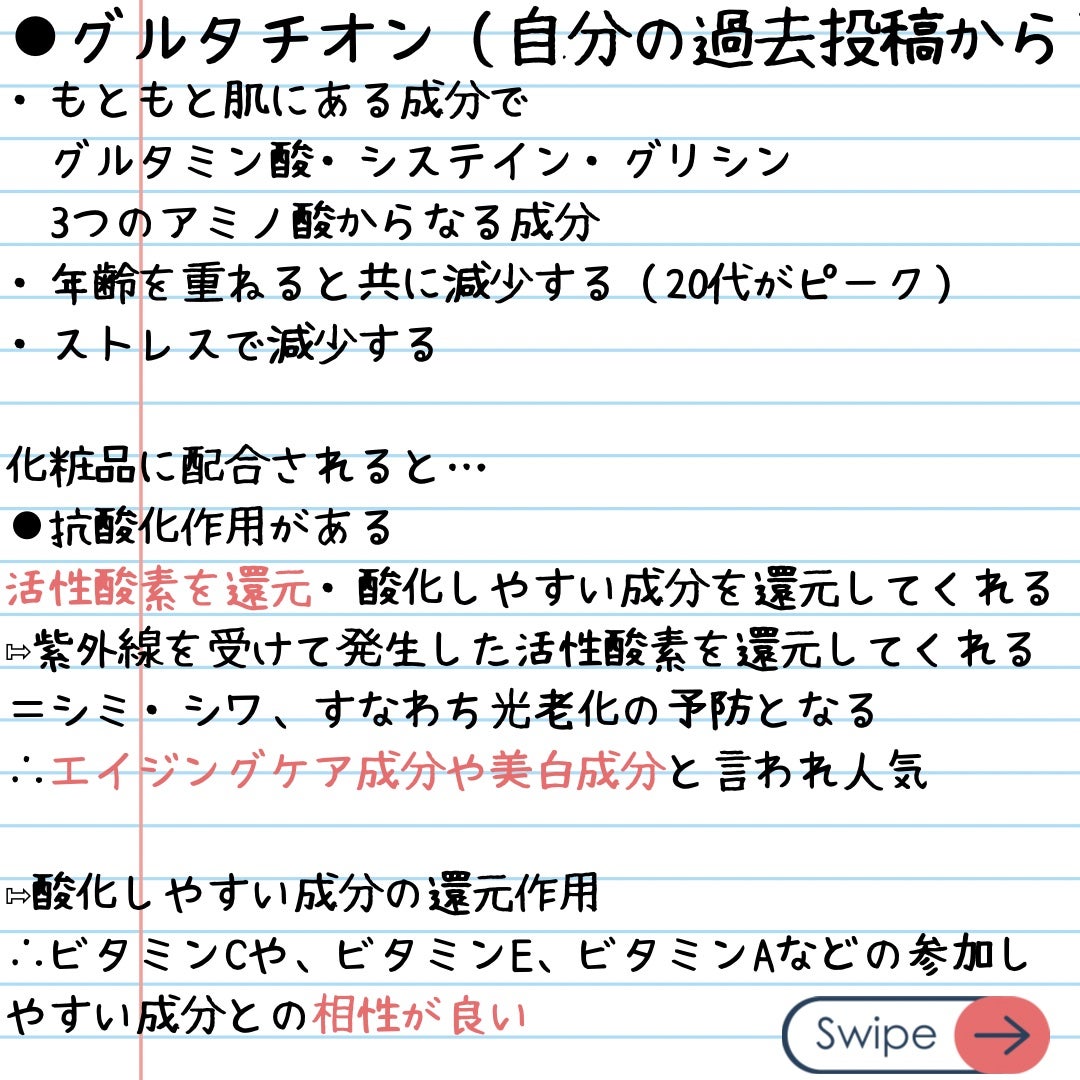 ●グルタチオン（自分の過去投稿から
・もともと肌にある成分で
グルタミン酸・システイン・グリシン
3つのアミノ酸からなる成分
・年齢を重ねると共に減少する（20代がピーク）
・ストレスで減少する
化粧品に配合されると…
●抗酸化作用がある
活性酸素を還元・酸化しやすい成分を還元してくれる
⇰紫外線を受けて発生した活性酸素を還元してくれる
＝シミ・シワ、すなわち光老化の予防となる
∴エイジングケア成分や美白成分と言われ人気
⇰酸化しやすい成分の還元作用
∴ビタミンCや、ビタミンE、ビタミンAなどの参加し
やすい成分との相性が良い
Swipe